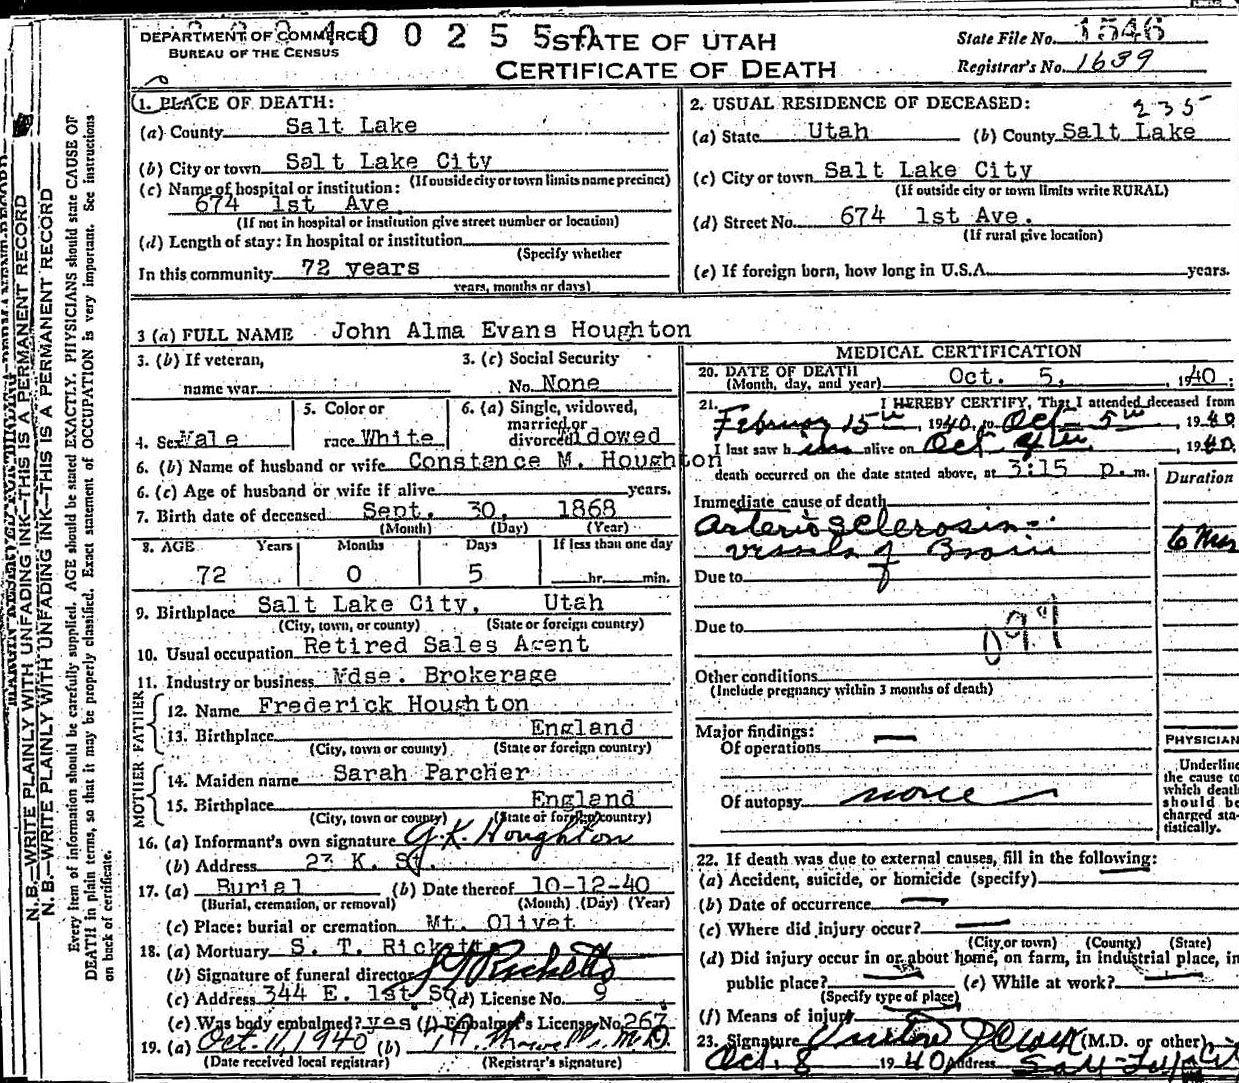 DEPARTMENT OF COMMERCE
BUREAU OF THE CENSUS
4 0 0 2 5 5
STATE OF UTAH
CERTIFICATE OF DEATH
State File No. 1546
Registrar's No. 1639
1. PLACE OF DEATH:
(a) County Salt Lake
(b) City or town Salt Lake City
(If outside city or town limits name precinct)
(c) Name of hospital or institution:
674 1st Ave.
(If not in hospital or institution give street number or location)
(d) Length of stay: In hospital or institution
(Specify whether
In this community 72 years
years, months or days)
2. USUAL RESIDENCE OF DECEASED:
235
(a) State Utah (b) County Salt Lake
(c) City or town Salt Lake City
(If outside city or town limits write RURAL)
(d) Street No. 674 1st Ave.
(If rural give location)
(e) If foreign born, how long in U.S.A. years.
3 (a) FULL NAME John Alma Evans Houghton
3. (b) If veteran,
name war
3. (c) Social Security
No. None
4. Sex Male
5. Color or
race White
6. (a) Single, widowed,
married or
divorced Widowed
6. (b) Name of husband or wife Constance M. Houghton
6. (c) Age of husband or wife if alive years.
7. Birth date of deceased Sept. 30, 1868
(Month) (Day) (Year)
8. AGE Years Months Days If less than one day
72 0 5 hr. min.
9. Birthplace Salt Lake City, Utah
(City, town, or county) (State or foreign country)
10. Usual occupation Retired Sales Agent
11. Industry or business Mdse. Brokerage
FATHER
12. Name Frederick Houghton
13. Birthplace England
(City, town or county) (State or foreign country)
MOTHER
14. Maiden name Sarah Parcher
15. Birthplace England
(City, town or county) (State or foreign country)
16. (a) Informant's own signature G.K. Houghton
(b) Address 23 K. St.
17. (a) Burial (b) Date thereof 10-12-40
(Burial, cremation, or removal) (Month) (Day) (Year)
(c) Place: burial or cremation Mt. Olivet
18. (a) Mortuary S. T. Rickett
(b) Signature of funeral director Ricketts
(c) Address 344 E. 1st So (d) License No. 9
(e) Was body embalmed? yes (f) Embalmer's License No. 267
19. (a) Oct. 11, 1940 (b) M.D.
(Date received local registrar) (Registrar's signature)
MEDICAL CERTIFICATION
20. DATE OF DEATH
(Month, day, and year) Oct. 5, 1940
21. I HEREBY CERTIFY, That I attended deceased from
February 15th, 1940, to Oct 5th, 1940
I last saw him alive on Oct 4th, 1940
death occurred on the date stated above, at 3:15 p.m.
Duration
Immediate cause of death
Arteriosclerosis -
vessels of Brain
6 Mos
Due to
Due to
Other conditions
(Include pregnancy within 3 months of death)
Major findings:
Of operations —
Of autopsy none
PHYSICIAN
Underline
the cause to
which death
should be
charged sta-
tistically.
22. If death was due to external causes, fill in the following:
(a) Accident, suicide, or homicide (specify)
(b) Date of occurrence —
(c) Where did injury occur? —
(City or town) (County) (State)
(d) Did injury occur in or about home, on farm, in industrial place, in
public place? — (e) While at work? —
(Specify type of place)
(f) Means of injury
23. Signature (M.D. or other)
Oct. 8 1940 Address
N. B.—WRITE PLAINLY WITH UNFADING INK—THIS IS A PERMANENT RECORD
N. B.—WRITE PLAINLY WITH UNFADING INK—THIS IS A PERMANENT RECORD
Every item of information should be carefully supplied. AGE should be stated EXACTLY. PHYSICIANS should state CAUSE OF
DEATH in plain terms, so that it may be properly classified. Exact statement of OCCUPATION is very important. See instructions
on back of certificate.